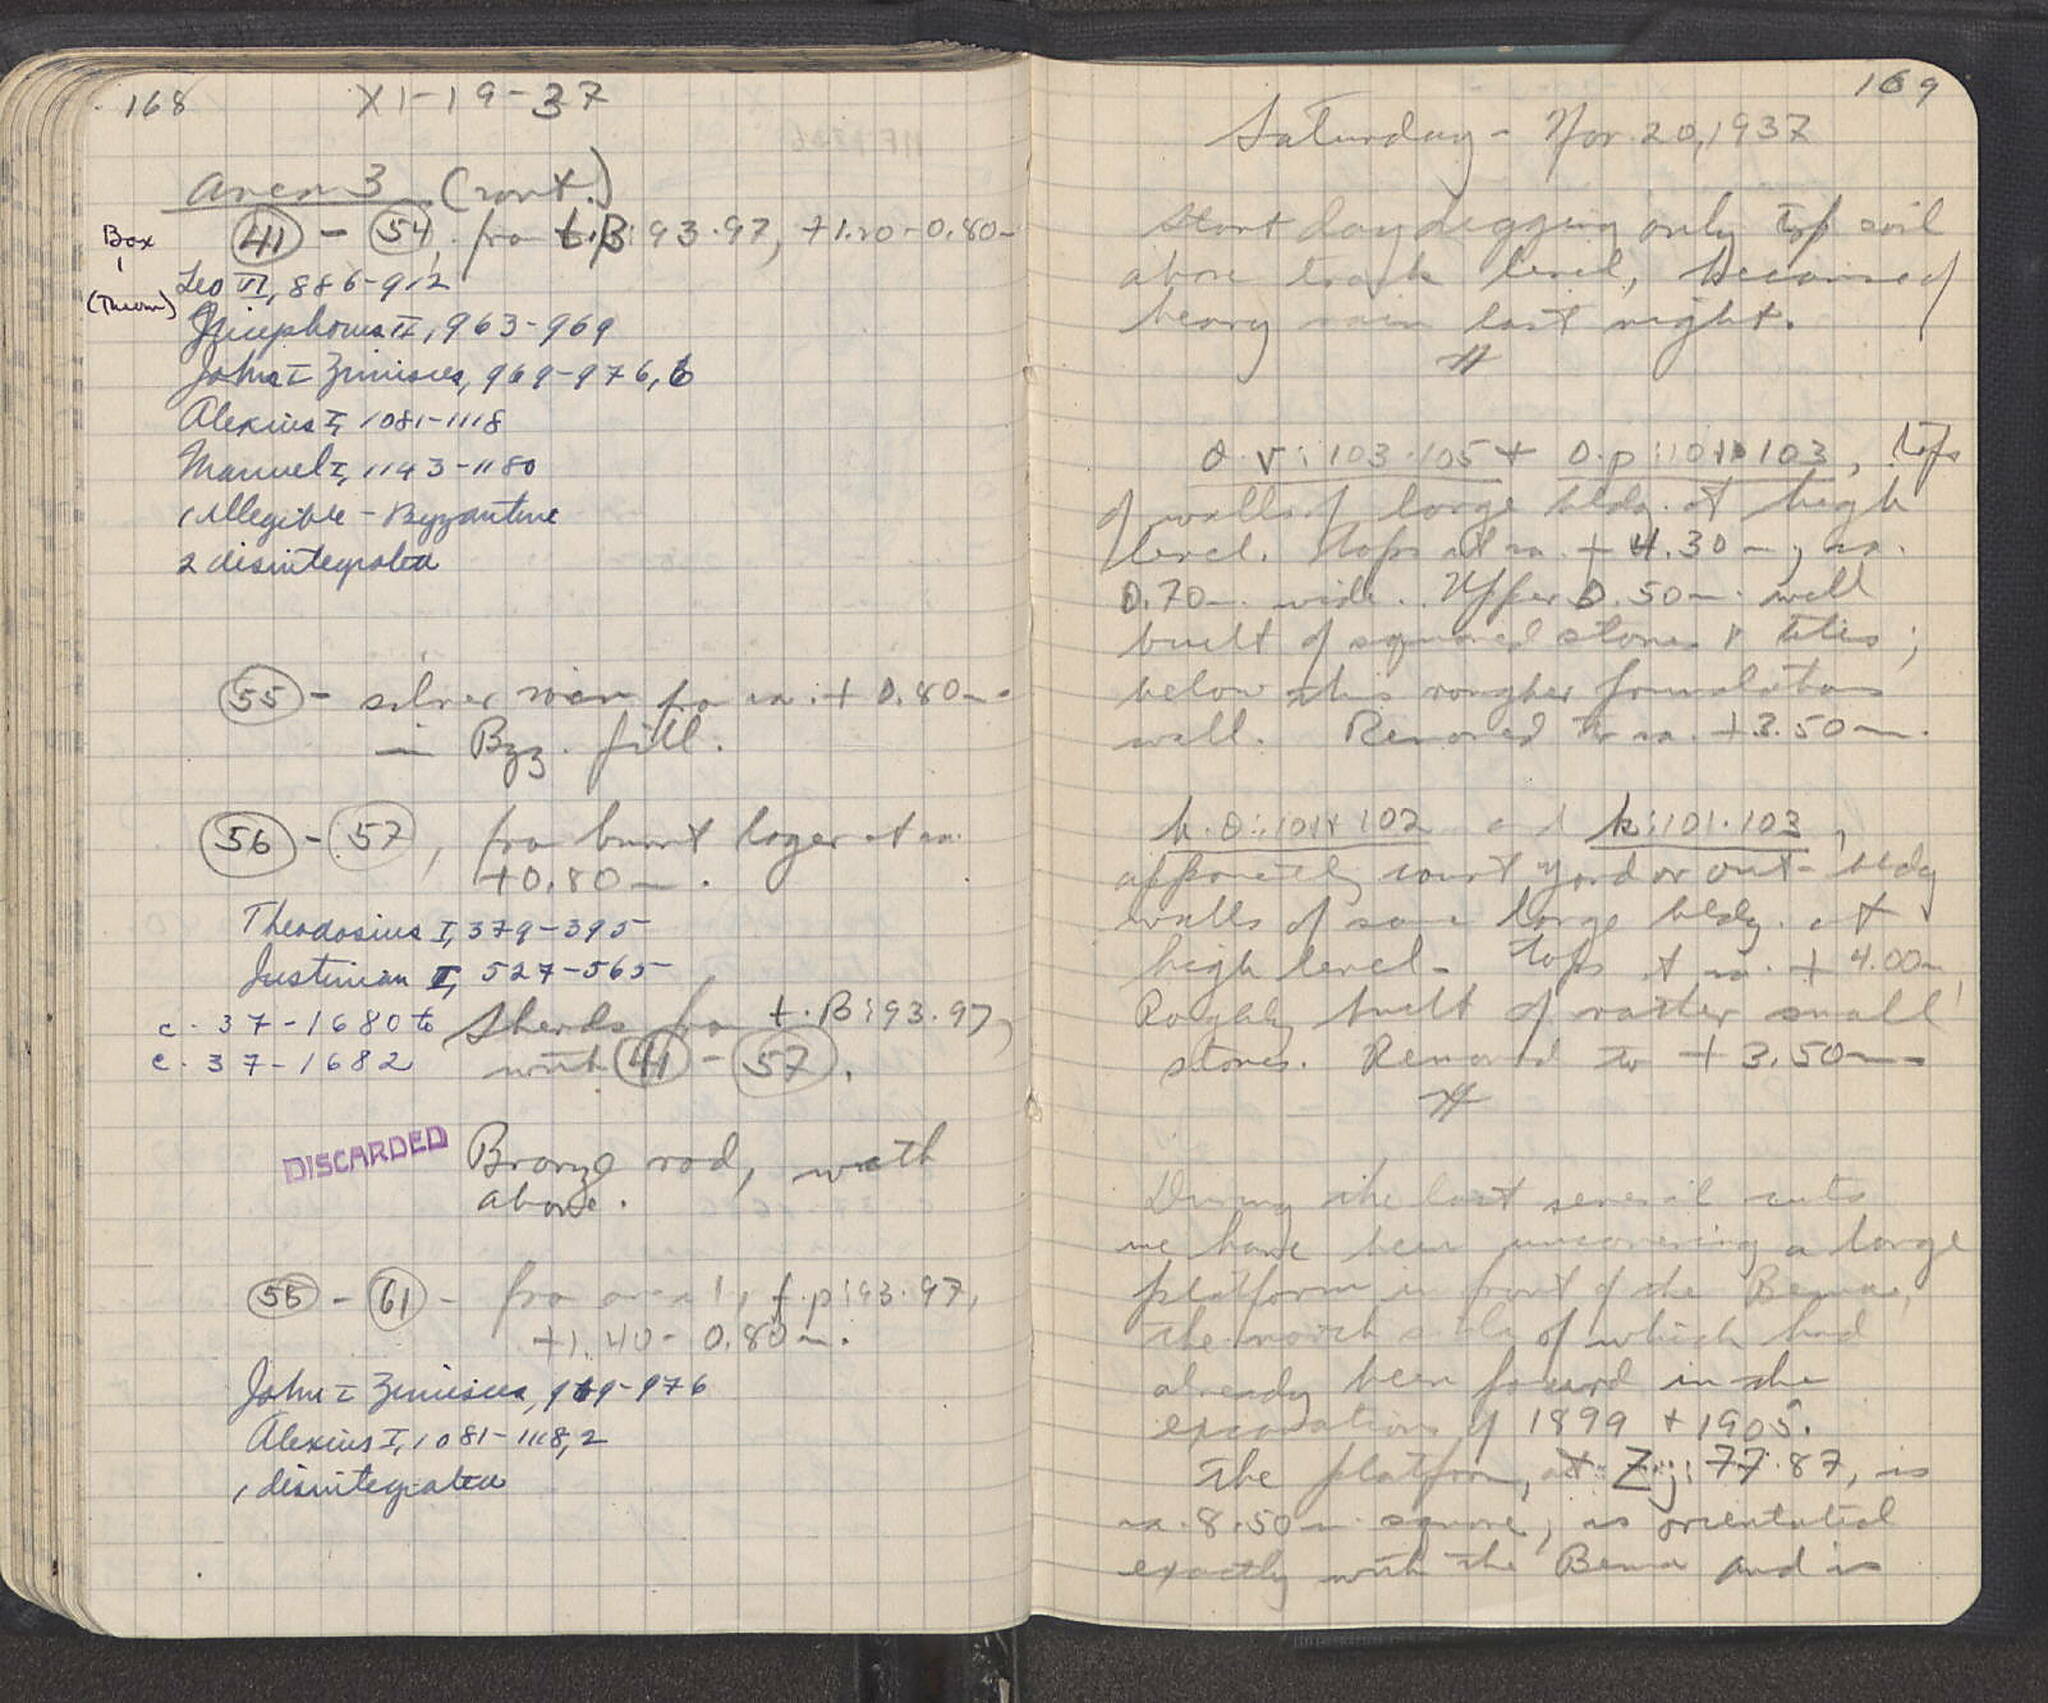 168
XI-19-37
Area 3 (cont.)
Box
(Theon)
41 - 54, fro t.β:93.97, +1.20-0.80m
Leo VI, 886-912
Nicephorus II, 963-969
John I Zimisces, 969-976, 6
Alexius I, 1081-1118
Manuel I, 1143-1180
1 illegible - Byzantine
2 disintegrated
55 - silver coin fro ca. + 0.80m.
in Byz. fill.
56 - 57, fro burnt layer at ca.
+0.80m.
Theodosius I, 379-395
Justinian I, 527-565
c. 37-1680 to
c. 37-1682
Sherds fro t.β:93.97,
with 41 - 57.
DISCARDED
Bronze rod, with
above.
58 - 61 - fro area 1, f.p:93.97,
+1.40-0.80m.
John I Zimisces, 969-976
Alexius I, 1081-1118, 2
1 disintegrated
169
Saturday - Nov. 20, 1937
Start day digging only top soil
above track level, because of
heavy rain last night.
#
θ.v:103.105 + θ.p:101.103, tops
of walls of large bldg. at high
level. Tops at ca. + 4.30m, ca.
0.70m. wide. Upper 0.50m. well
built of squared stones & tiles;
below this rougher foundation
wall. Removed to ca. +3.50m.
k.θ:101.102 and k:101.103,
apparently court yard or out-bldg
walls of same large bldg. at
high level - tops at ca. + 4.00m.
Roughly built of rather small
stones. Removed to + 3.50m.
#
During the last several cuts
we have been uncovering a large
platform in front of the Bema,
the north side of which had
already been found in the
excavations of 1899 + 1905.
The platform, at Z.j:77.87, is
ca. 8.50m. square, is orientated
exactly with the Bema and is